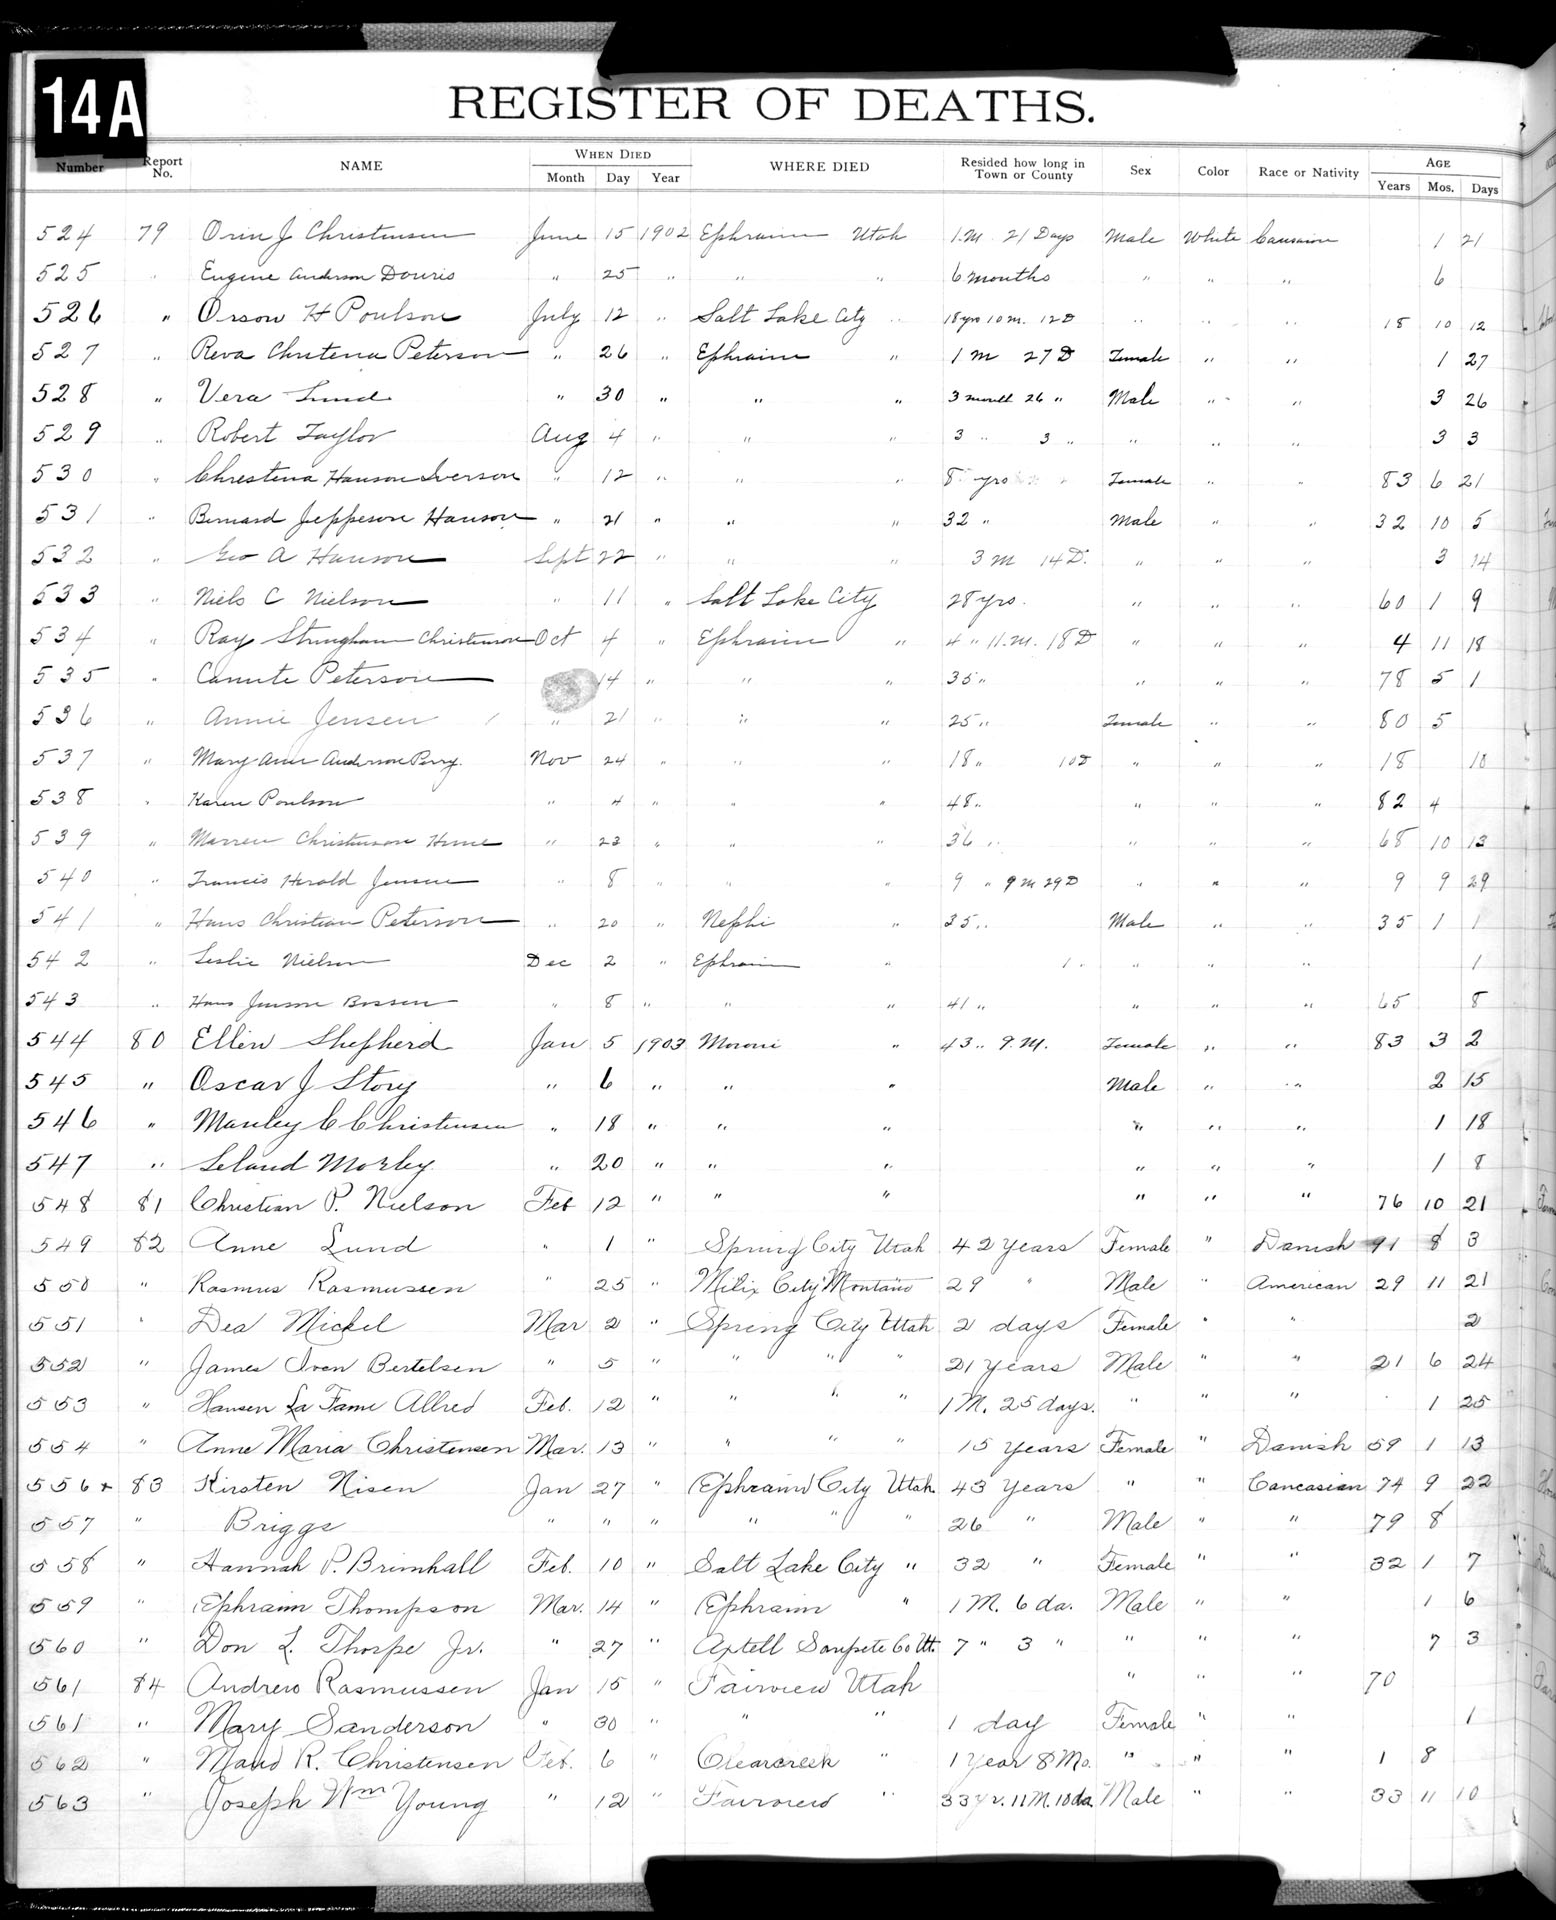 14A
REGISTER OF DEATHS.
Number Report No. NAME WHEN DIED Month Day Year WHERE DIED Resided how long in Town or County Sex Color Race or Nativity AGE Years Mos. Days
524 79 Orin J Christensen June 15 1902 Ephraim Utah 1.M. 21 Days Male White 1 21
525 " Eugene Anderson Douris " 25 " " " 6 months " " " 6
526 " Orson H Poulson July 12 " Salt Lake City " 18 yrs 10 m. 12 D " " " 18 10 12
527 " Reva Christena Peterson " 26 " Ephraim " 1 m 27 D Female " " 1 27
528 " Vera Lund " 30 " " " 3 month 26 " Male " " 3 26
529 " Robert Taylor Aug 4 " " " 3 " 3 " " " " 3 3
530 " Christena Hanson Iverson " 12 " " " yrs Female " " 83 6 21
531 " Bernard Jeppeson Hanson " 21 " " " 32 " Male " " 32 10 5
532 " Geo A Hanson Sept 22 " " " 3 m 14 D. " " " 3 14
533 " Niels C Nielson " 11 " Salt Lake City 28 yrs. " " " 60 1 9
534 " Ray Stringham Christenson Oct 4 " Ephraim " 4 " 11.M. 18 D " " " 4 11 18
535 " Canute Peterson 14 " " " 35 " " " " 78 5 1
536 " Annie Jensen " 21 " " " 25 " Female " " 80 5
537 " Mary Ann Anderson Perry. Nov 24 " " " 18 " 10 D " " " 18 10
538 " Karen Poulson " 4 " " " 48 " " " " 82 4
539 " Christenson " 23 " " " 36 " " " " 68 10 13
540 " Francis Herold Jensen " 8 " " " 9 " 9 M 29 D " " " 9 9 29
541 " Hans Christian Peterson " 20 " Nephi " 35 " Male " " 35 1 1
542 " Leslie Nielson Dec 2 " Ephraim " 1 " " " " 1
543 " Hans Jenson Bossen " 8 " " " 41 " " " " 65 8
544 80 Ellen Shepherd Jan 5 1903 Moroni " 43 " 9.M. Female " " 83 3 2
545 " Oscar J Story " 6 " " " Male " " 2 15
546 " Manley C Christensen " 18 " " " " " " 1 18
547 " Leland Morley " 20 " " " " " " 1 8
548 81 Christian P. Nielson Feb 12 " " " " " " 76 10 21
549 82 Anne Lund " 1 " Spring City Utah 42 years Female " Danish 91 8 3
550 " Rasmus Rasmussen " 25 " City Montana 29 " Male " American 29 11 21
551 " Dea Mickel Mar 2 " Spring City Utah 2 days Female " " 2
552 " James Oven Bertelsen " 5 " " " " 21 years Male " " 21 6 24
553 " Hansen La Fame Allred Feb. 12 " " " " 1 M. 25 days. " " " 1 25
554 " Anne Maria Christensen Mar. 13 " " " " 15 years Female " Danish 59 1 13
556 + 83 Kirsten Nisen Jan 27 " Ephraim City Utah 43 years " " Cancasian 74 9 22
557 " Briggs " " " " " " 26 " Male " " 79 8
558 " Hannah P. Brimhall Feb. 10 " Salt Lake City " 32 " Female " " 32 1 7
559 " Ephraim Thompson Mar. 14 " Ephraim " 1 M. 6 da. Male " " 1 6
560 " Don L. Thorpe Jr. " 27 " Axtell Sanpete Co Ut. 7 " 3 " " " " 7 3
561 84 Andrew Rasmussen Jan 15 " Fairview Utah " " " 70
561 " Mary Sanderson " 30 " " " 1 day Female " " 1
562 " Maud R. Christensen Feb. 6 " Clearcreek " 1 year 8 Mo. " " " 1 8
563 " Joseph Wm Young " 12 " Fairview " 33 yr. 11 M. 10 da. Male " " 33 11 10